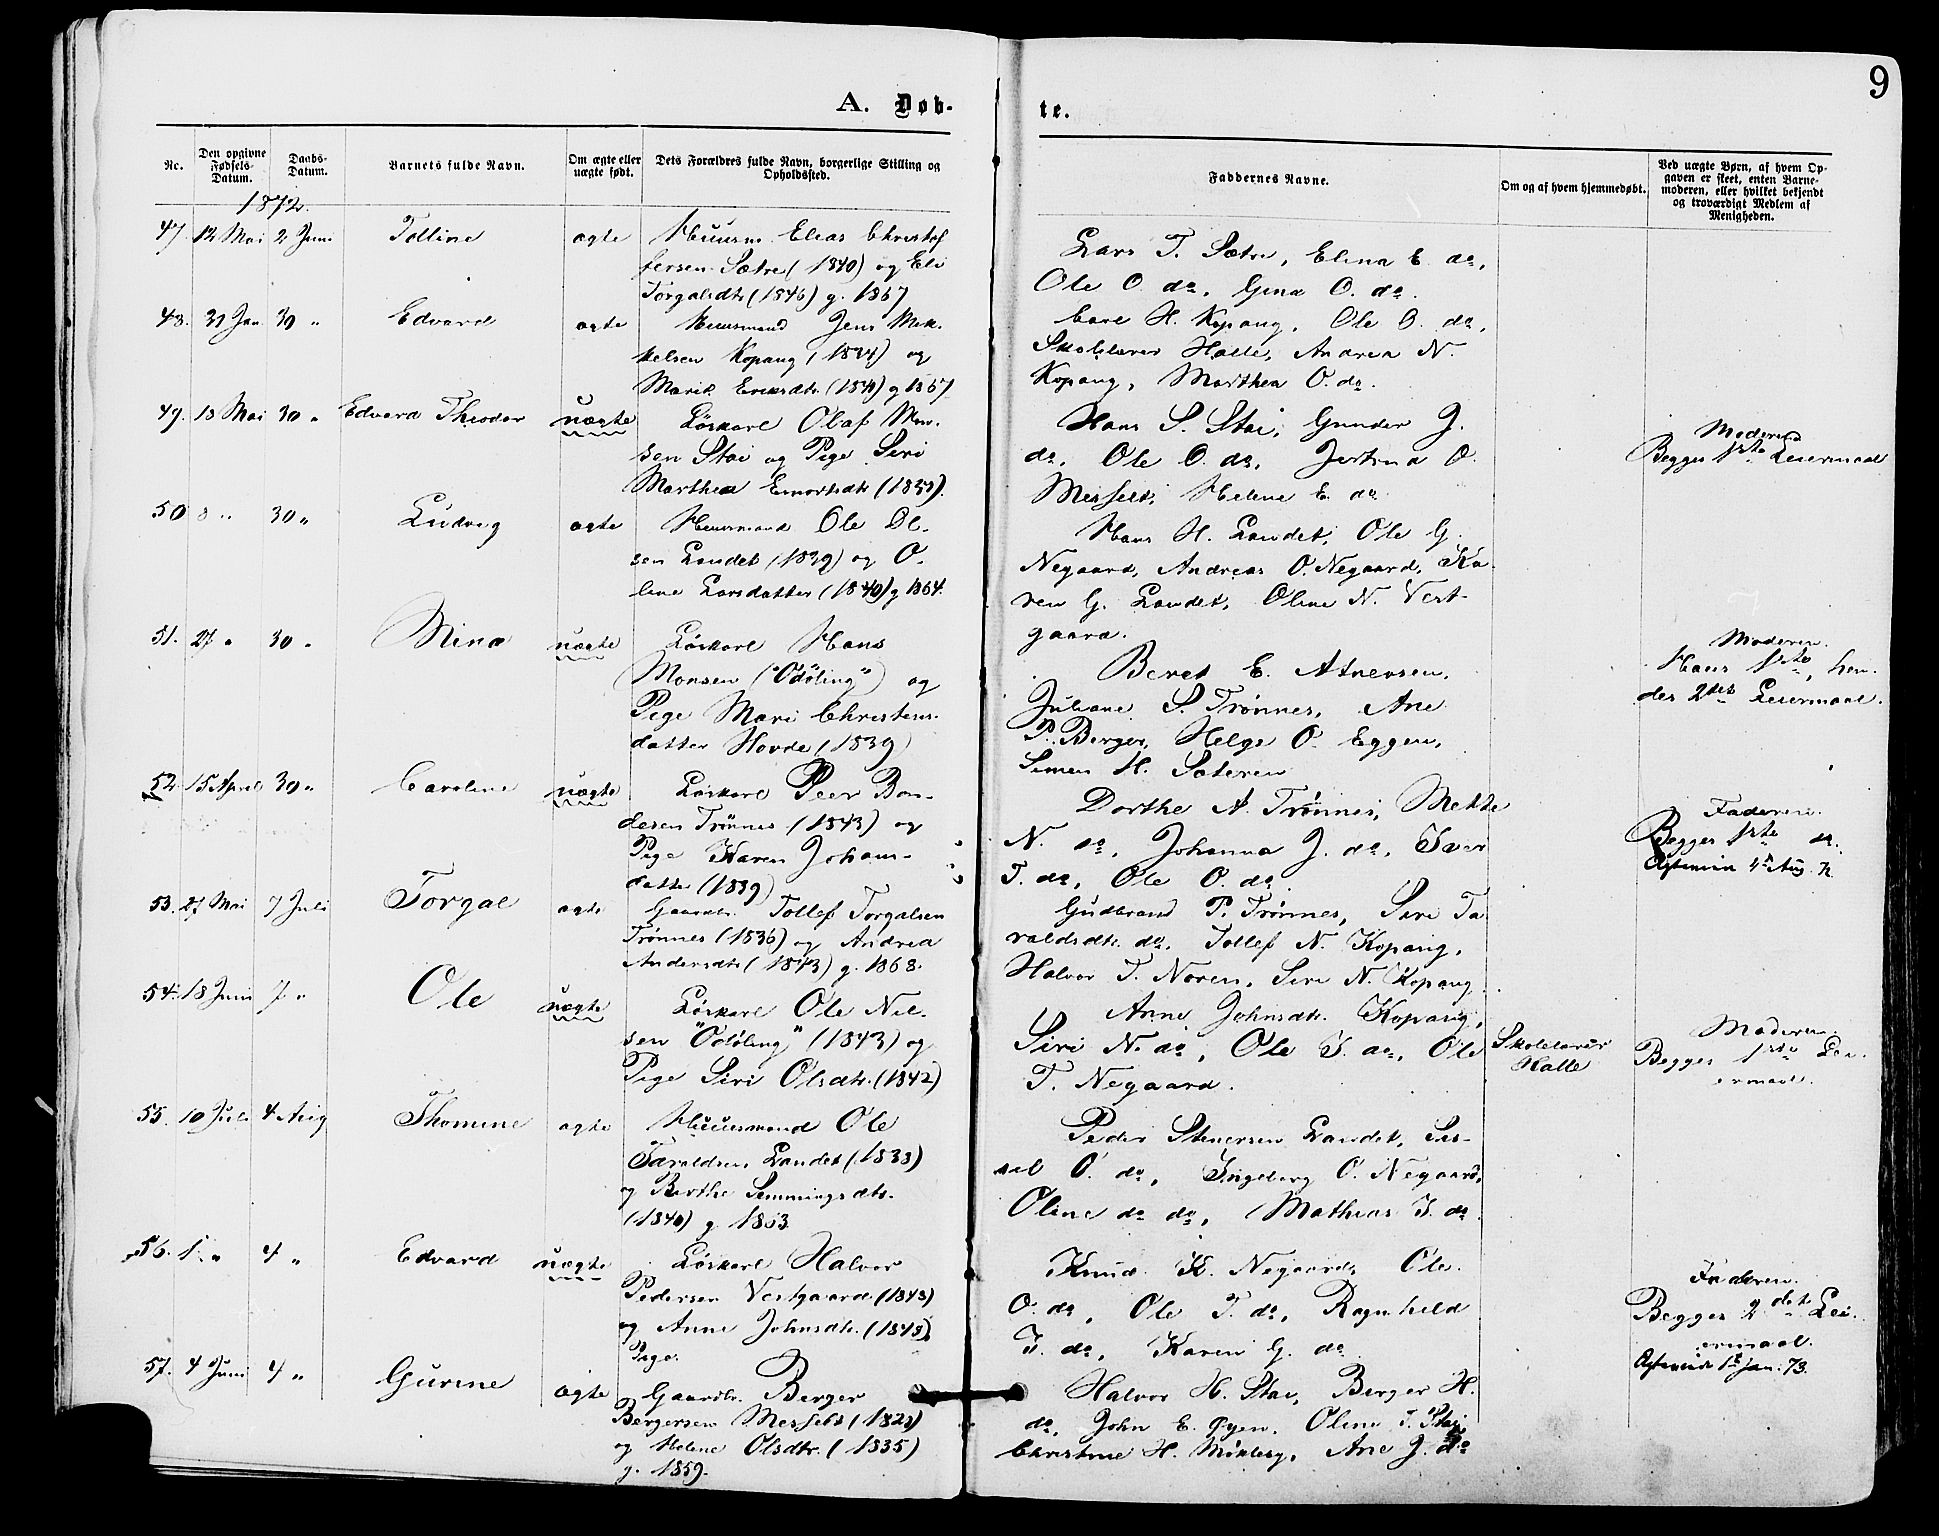 9
A. Døb-
te.
No.
Den opgivne
Fødsels-
Datum.
Daabs-
Datum.
Barnets fulde Navn.
Om ægte eller
uægte født.
Dets Forældres fulde Navn, borgerlige Stilling og
Opholdssted.
Faddernes Navne.
Om og af hvem hjemmedøbt.
Ved uægte Børn, af hvem Op-
gaven er skeet, enten Barne-
moderen, eller hvilket bekjendt
og troværdigt Medlem af
Menigheden.
1872.
47. 12 Mai 2 Juni Tolline ægte Huusm. Elias Christof
fersen Sætre (1840) og Eli
Torgalsdtr (1846) g. 1867
Lars T. Sætre, Elina E. do,
Ole O. do, Gina O. do.
48. 31 Jan 30 " Edvard ægte Huusmand Jens Mik-
kelsen Kopang (1834) og
Marit Eriksdtr. (1841) g 1867
H. Kopang, Ole O. do,
Skolelærer Halle, Andrea N.
Kopang, Marthea O. do.
49. 18 Mai 30 " Edvard Theodor uægte Løskarl Olaf Mon-
sen Stai og Pige Siri
Marthea Emortsdtr (1839).
Hans S. Stai, Gunder J.
do, Ole O. do, Jertrud O.
Messelt, Helene E. do
Moderen
Begges 1ste Leiermaal
50 8 " 30 " Ludvig ægte Huusmand Ole Ol-
sen Landet (1839) og O-
line Larsdatter (1840) g 1864.
Hans H. Landet, Ole G.
Negaard, Andreas O. Negaard, Ka-
ren G. Landet, Oline N. Vest-
gaard.
51. 27 " 30 " Mina uægte Løskarl Hans
Monsen ("Odöling") og
Pige Mari Christens-
datter Hovde (1839)
Beret E. Atneosen,
Juliane S. Trønnes, Ane
P. Berger, Helge O. Eggen,
Simen H. Sæteren
Moderen.
Hans 1ste, hen-
des 2det Leiermaal.
52. 15 April 30 " Caroline uægte Løskarl Peer Bon-
desen Trønnes (1843) og
Pige Karen Johans-
datter (1839)
Dorthe A. Trønnes, Mette
N. do, Johanna J. do, Iver
T. do, Ole O. do.
Faderen.
Begges 1ste do.
Ægteviede 4de Aug. 72
53. 27 Mai 7 Juli Torgal ægte Gaardbr. Tollef Torgalsen
Trønnes (1836) og Andrea
Andersdtr (1843) g. 1868.
Gudbrand P. Trønnes, Siri Ta-
raldsdtr. do, Tollef N. Kopang,
Halvor T. Noren, Siri N. Kopang.
54. 18 Juni 7 " Ole uægte Løskarl Ole Nil-
sen "Odöling" (1843) og
Pige Siri Olsdtr. (1842)
Anne Johnsdtr. Kopang,
Siri N. do, Ole I. do, Ole
T. Negaard.
Skolelærer
Halle
Moderen.
Begges 1ste Lei-
ermaal.
55. 10 Juli 4 Aug Thomine ægte Huusmand Ole
Taraldsen Landet (1833)
og Berthe Semmingsdtr.
(1840) g 1863
Peder Stenersen Landet, Sis-
sel O. do, Ingeborg O. Negaard,
Oline do do, Mathias I. do
56. 1 " 4 " Edvard uægte Løskarl Halvor
Pedersen Vestgaard (1843)
og Anne Johnsdtr. (1843)
Pige.
Knud K. Negaard, Ole
O. do, Ole T. do, Ragnhild
T. do, Karen G. do
Faderen.
Begges 2det Lei-
ermaal.
Ægteviede 1ste Jan. 73.
57. 4 Juni 4 " Gurine ægte Gaardbr. Berger
Bergersen Messelt (1828)
og Helene Olsdtr. (1835)
g. 1859.
Halvor H. Stai, Berger H.
do, John E. Øyen, Oline T. Stai,
Christine H. Mykleby, Ane J. do